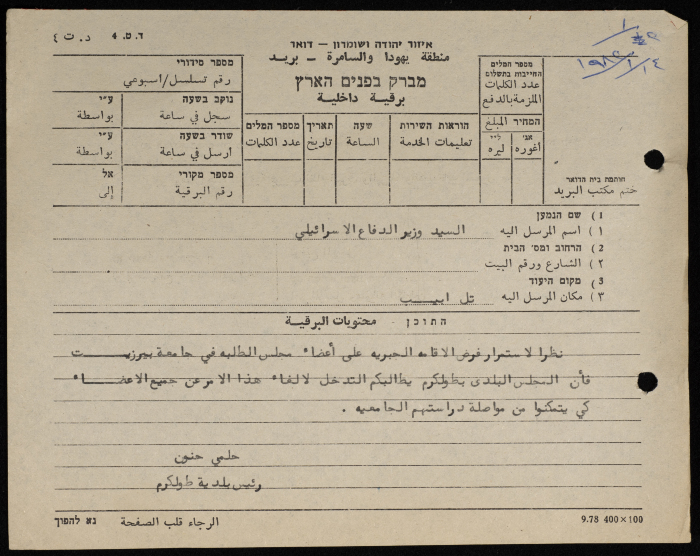 ד. ט. 4 د. ت ٤
איזור יהודה ושומרון – דואר
منطقة يهودا والسامرة – بريد
מברק בפנים הארץ
برقية داخلية
מספר סידורי
رقم تسلسل/اسبوعي
נוקב בשעה ע״י
سجل في ساعة بواسطة
שודר בשעה ע״י
ارسل في ساعة بواسطة
מספר מקורי אל
رقم البرقية إلى
מספר המלים
عدد الكلمات
תאריך
تاريخ
שעה
الساعة
הוראות השירות
تعليمات الخدمة
מספר המלים
החייבות בתשלום
عدد الكلمات
الملزمة بالدفع
המחיר المبلغ
אג׳ ל״י
أغوره ليره
חותמת בית הדואר
ختم مكتب البريد
1) שם הנמען
١) اسم المرسل اليه السيد وزير الدفاع الاسرائيلي
2) הרחוב ומס׳ הבית
٢) الشارع ورقم البيت
3) מקום היעוד
٣) مكان المرسل اليه تل ابيب
התוכן محتويات البرقية
نظرا لاستمرار فرض الاقامه الجبريه على أعضاء مجلس الطلبه في جامعة بيرزيت
فأن المجلس البلدي بطولكرم يطالبكم التدخل لالغاء هذا الامر عن جميع الاعضاء
كي يتمكنوا من مواصلة دراستهم الجامعيه .
حلمي حنون
رئيس بلدية طولكرم
נא להפוך الرجاء قلب الصفحة
9.78 400×100